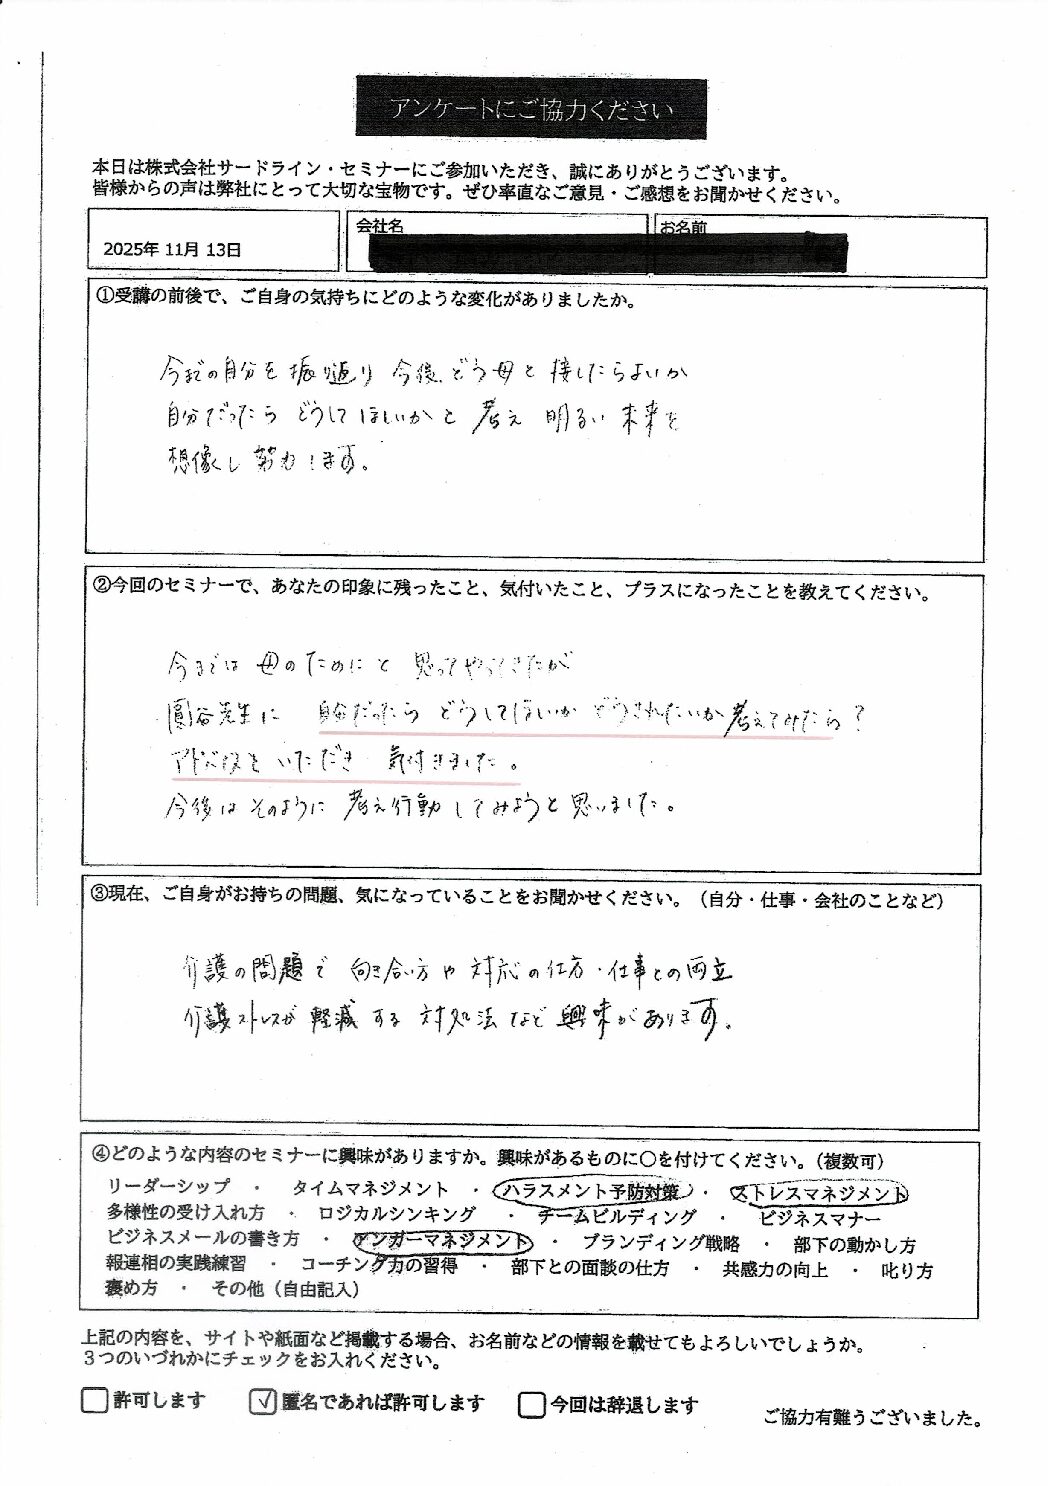 アンケートにご協力ください
本日は株式会社サードライン・セミナーにご参加いただき、誠にありがとうございます。
皆様からの声は弊社にとって大切な宝物です。ぜひ率直なご意見・ご感想をお聞かせください。
2025年 11月 13日
会社名
お名前
①受講の前後で、ご自身の気持ちにどのような変化がありましたか。
今までの自分を振り返り 今後、どう母と接したらよいか
自分だったら どうしてほしいかと 考え 明るい未来を
想像し努力します。
②今回のセミナーで、あなたの印象に残ったこと、気付いたこと、プラスになったことを教えてください。
今までは 母のためにと 思ってやってきたが
圓谷先生に 自分だったら どうしてほしいか どうされたいか考えてみたら?
アドバイスを いただき 気付きました。
今後はそのように 考え行動してみようと思いました。
③現在、ご自身がお持ちの問題、気になっていることをお聞かせください。（自分・仕事・会社のことなど）
介護の問題で 向き合い方や 対応の仕方・仕事との両立
介護ストレスが 軽減する 対処法など 興味があります。
④どのような内容のセミナーに興味がありますか。興味があるものに〇を付けてください。（複数可）
リーダーシップ ・ タイムマネジメント ・ ハラスメント予防対策 ・ ストレスマネジメント
多様性の受け入れ方 ・ ロジカルシンキング ・ チームビルディング ・ ビジネスマナー
ビジネスメールの書き方 ・ アンガーマネジメント ・ ブランディング戦略 ・ 部下の動かし方
報連相の実践練習 ・ コーチング力の習得 ・ 部下との面談の仕方 ・ 共感力の向上 ・ 叱り方
褒め方 ・ その他（自由記入）
上記の内容を、サイトや紙面など掲載する場合、お名前などの情報を載せてもよろしいでしょうか。
３つのいづれかにチェックをお入れください。
許可します 匿名であれば許可します 今回は辞退します
ご協力有難うございました。